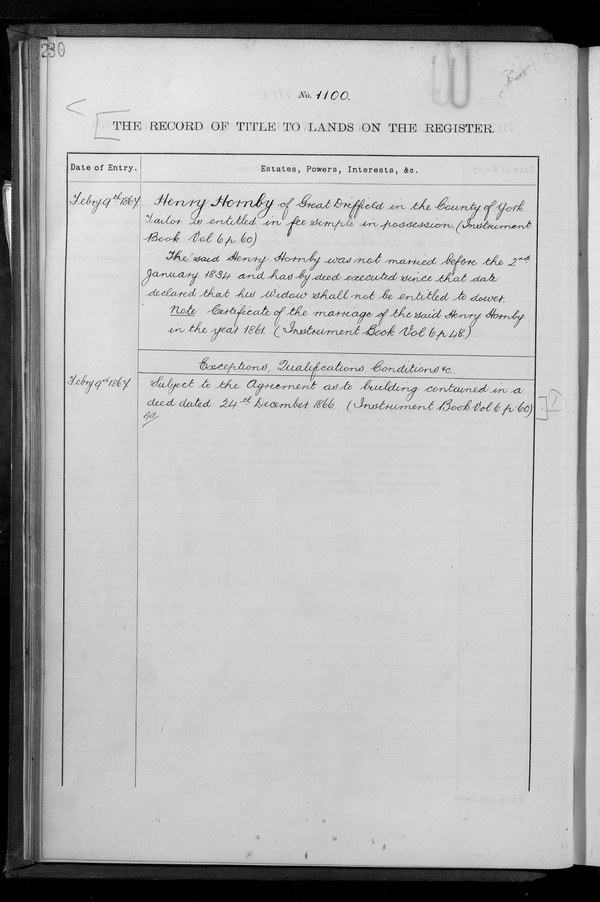 230
No. 1100.
THE RECORD OF TITLE TO LANDS ON THE REGISTER.
Date of Entry.
Estates, Powers, Interests, &c.
Febry 9th 1867
Henry Hornby of Great Driffield in the County of York
Tailor is entitled in fee simple in possession. (Instrument
Book Vol 6 p 60)
The said Henry Hornby was not married before the 2nd
January 1834 and has by deed executed since that date
declared that his Widow shall not be entitled to dower.
Note Certificate of the marriage of the said Henry Hornby
in the year 1861 (Instrument Book Vol 6 p 48)
Exceptions, Qualifications, Conditions &c.
Febry 9th 1867
Subject to the Agreement as to building contained in a
deed dated 24th December 1866 (Instrument Book Vol 6 p 60)